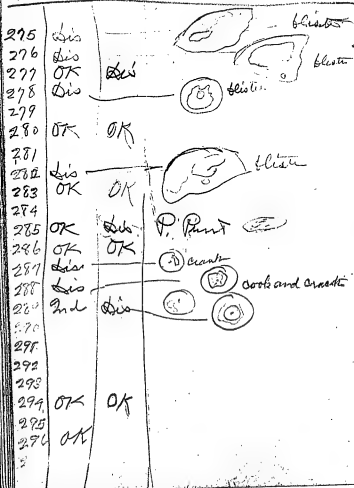 275 Dis blister
276 Dis blister
277 OK Dis
278 Dis blister
279
280 OK OK
281
282 Dis blister
283 OK OK
284
285 OK Dis P.
286 OK OK
287 Dis crack
288 Dis cook and crack
289 2nd Dis
290
291
292
293
294 OK OK
295
296 OK